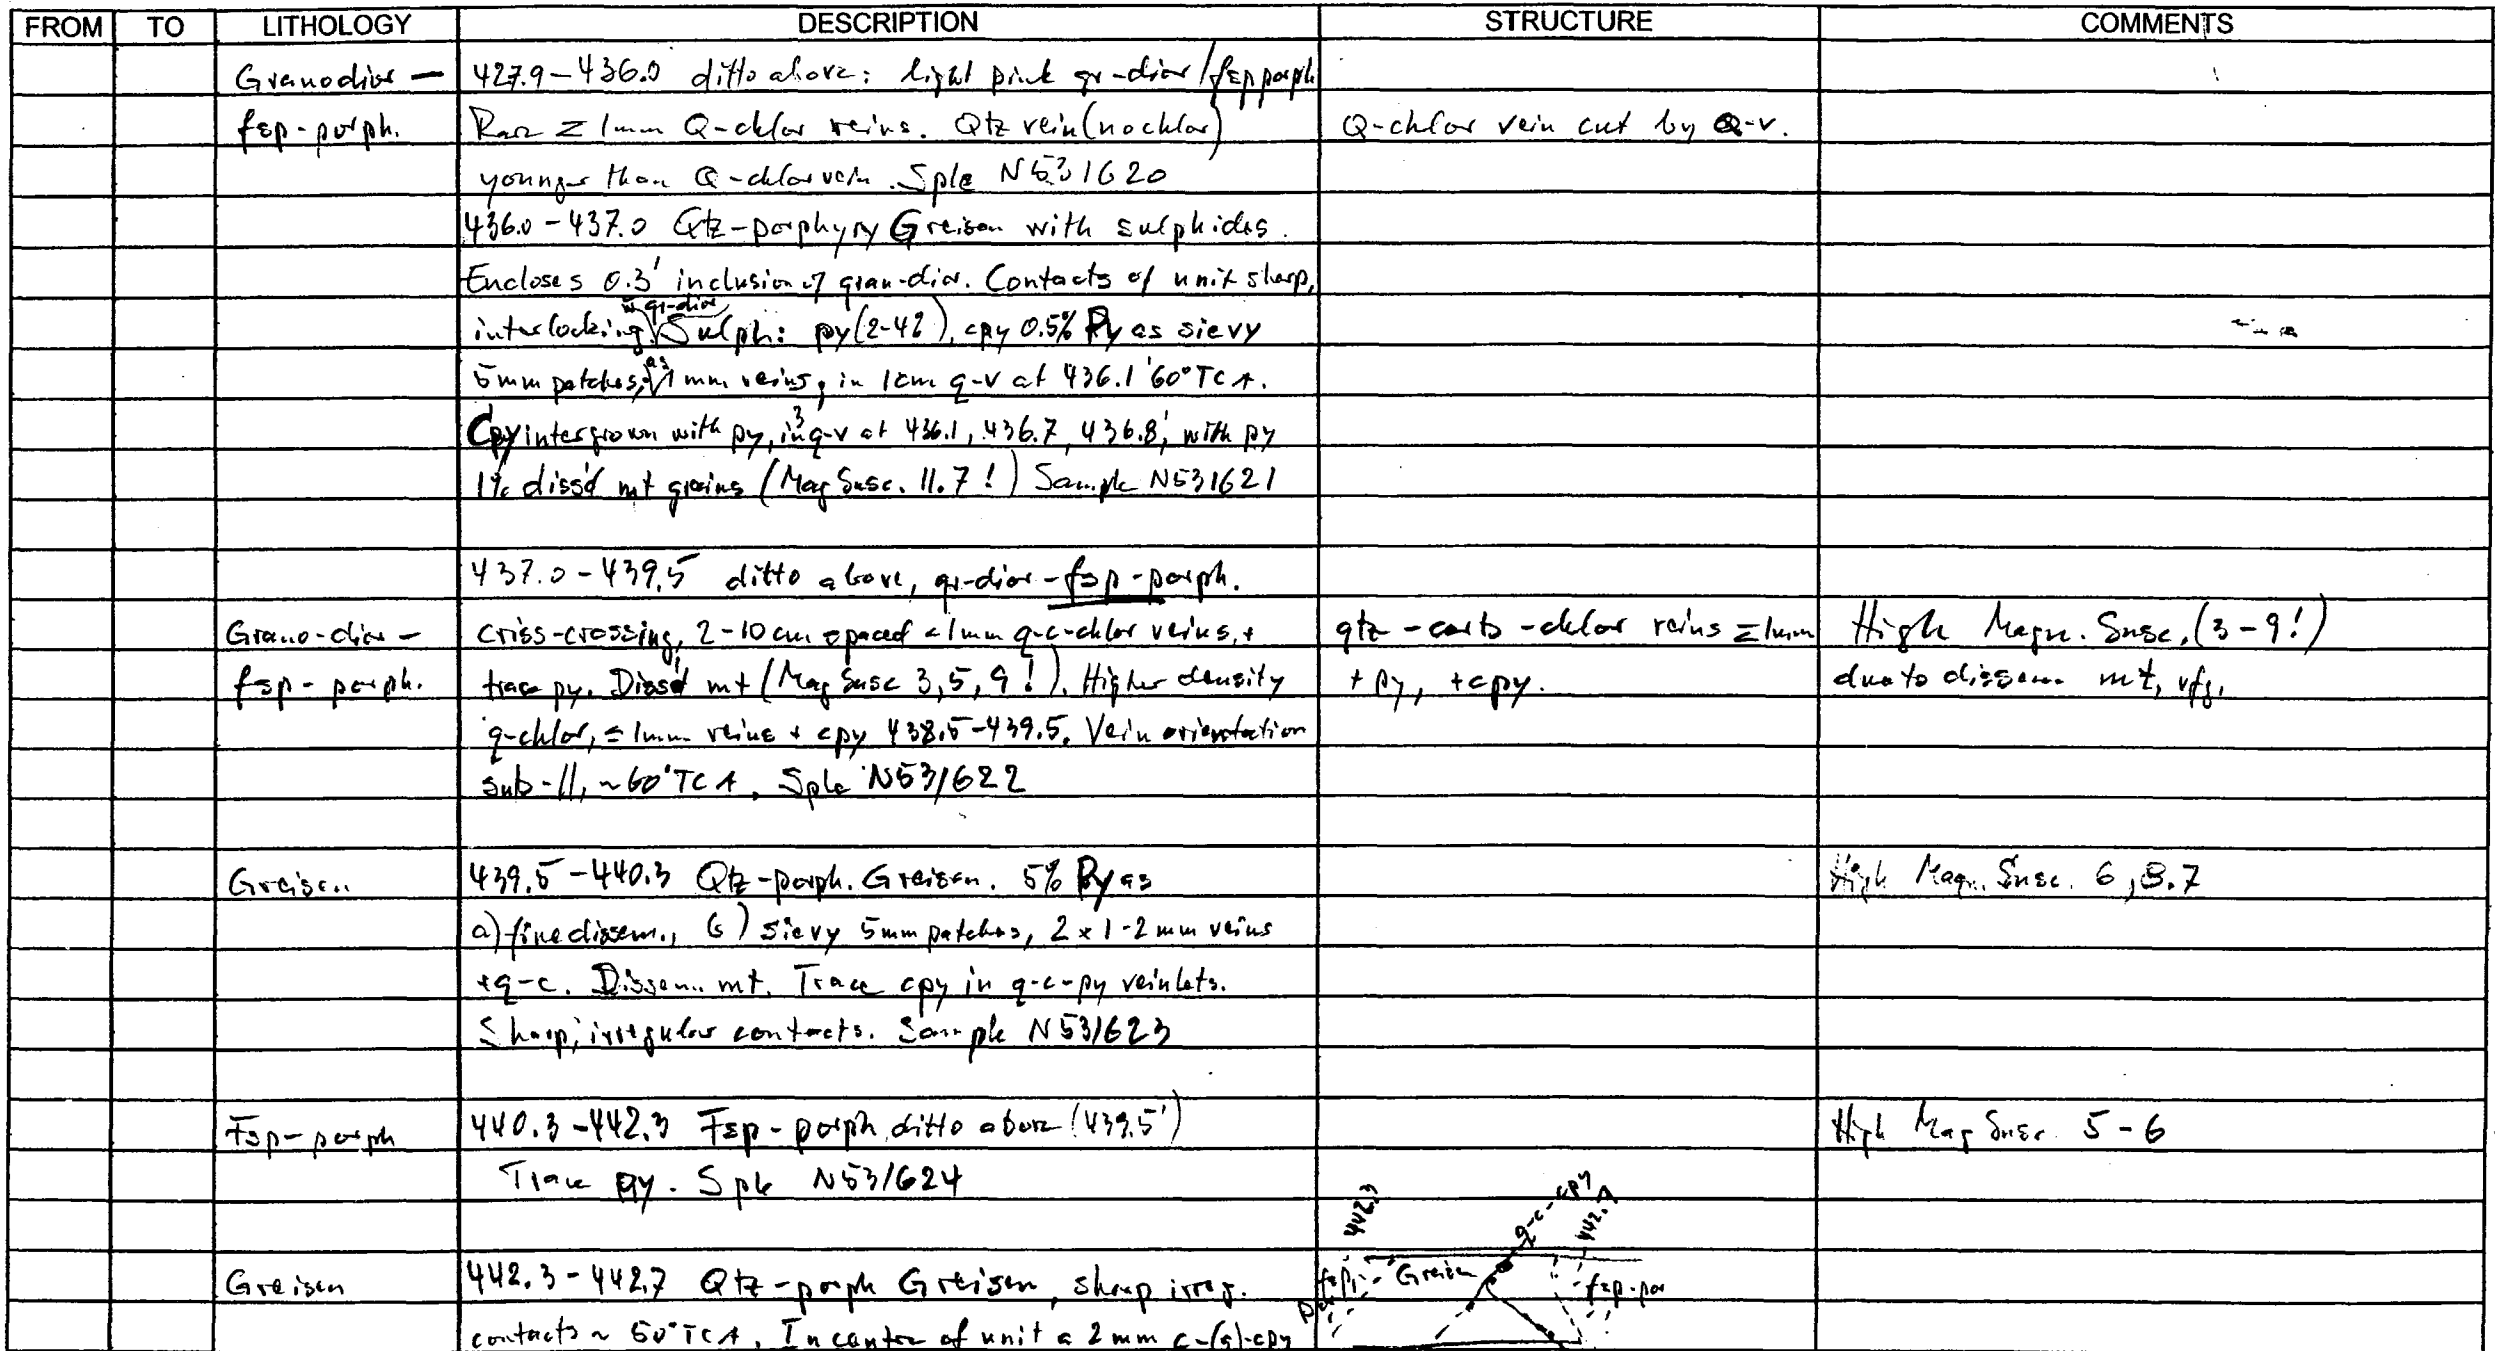 FROM TO LITHOLOGY DESCRIPTION STRUCTURE COMMENTS
Granodior — 427.9-436.0 ditto above: light pink gr-dior/fsp porph
fsp-porph. Rare ≤ 1mm Q-chlor veins. Qtz vein (no chlor) Q-chlor vein cut by Q-v.
younger than Q-chlor vein. Sple N531620
436.0-437.0 Qtz-porphyry Greisen with sulphides.
Encloses 0.3' inclusion of gran-dior. Contacts of unit sharp,
w gr-dior
interlocking. Sulph: py (2-4%), cpy 0.5% Py as sievy
5mm patches, as 1mm veins, in 1cm q-v at 436.1' 60° TCA.
Cpy intergrown with py, in 3 q-v at 436.1, 436.7, 436.8', with py
1% diss'd mt grains (Mag Susc. 11.7!) Sample N531621
437.0-439.5 ditto above, gr-dior-fsp-porph.
Grano-dior - criss-crossing, 2-10 cm spaced <1mm q-c-chlor veins, + qtz-carb-chlor veins ≤1mm High Magn. Susc. (3-9!)
fsp-porph. trace py. Diss'd mt (Mag Susc 3, 5, 9!). Higher density + py, +cpy. due to dissem. mt, vfg.
q-chlor, ≤1mm veins + cpy 438.5-439.5. Vein orientation
sub-//, ~60° TCA. Sple N531622
Greisen 439.5-440.3 Qtz-porph. Greisen. 5% Py as High Magn. Susc. 6, 8.7
a) fine dissem., b) sievy 5mm patches, 2 x 1-2 mm veins
+q-c. Dissem. mt. Trace cpy in q-c-py veinlets.
Sharp, irregular contacts. Sample N531623
Fsp-porph 440.3-442.3 Fsp-porph, ditto above (439.5') High Mag Susc. 5-6
Trace py. Sple N531624
442.3 q-c-cpy 442.7
Greisen 442.3-442.7 Qtz-porph Greisen, sharp irreg. fsp. Greisen fsp-por
contacts ~ 50° TCA. In center of unit a 2mm c-(q)-cpy